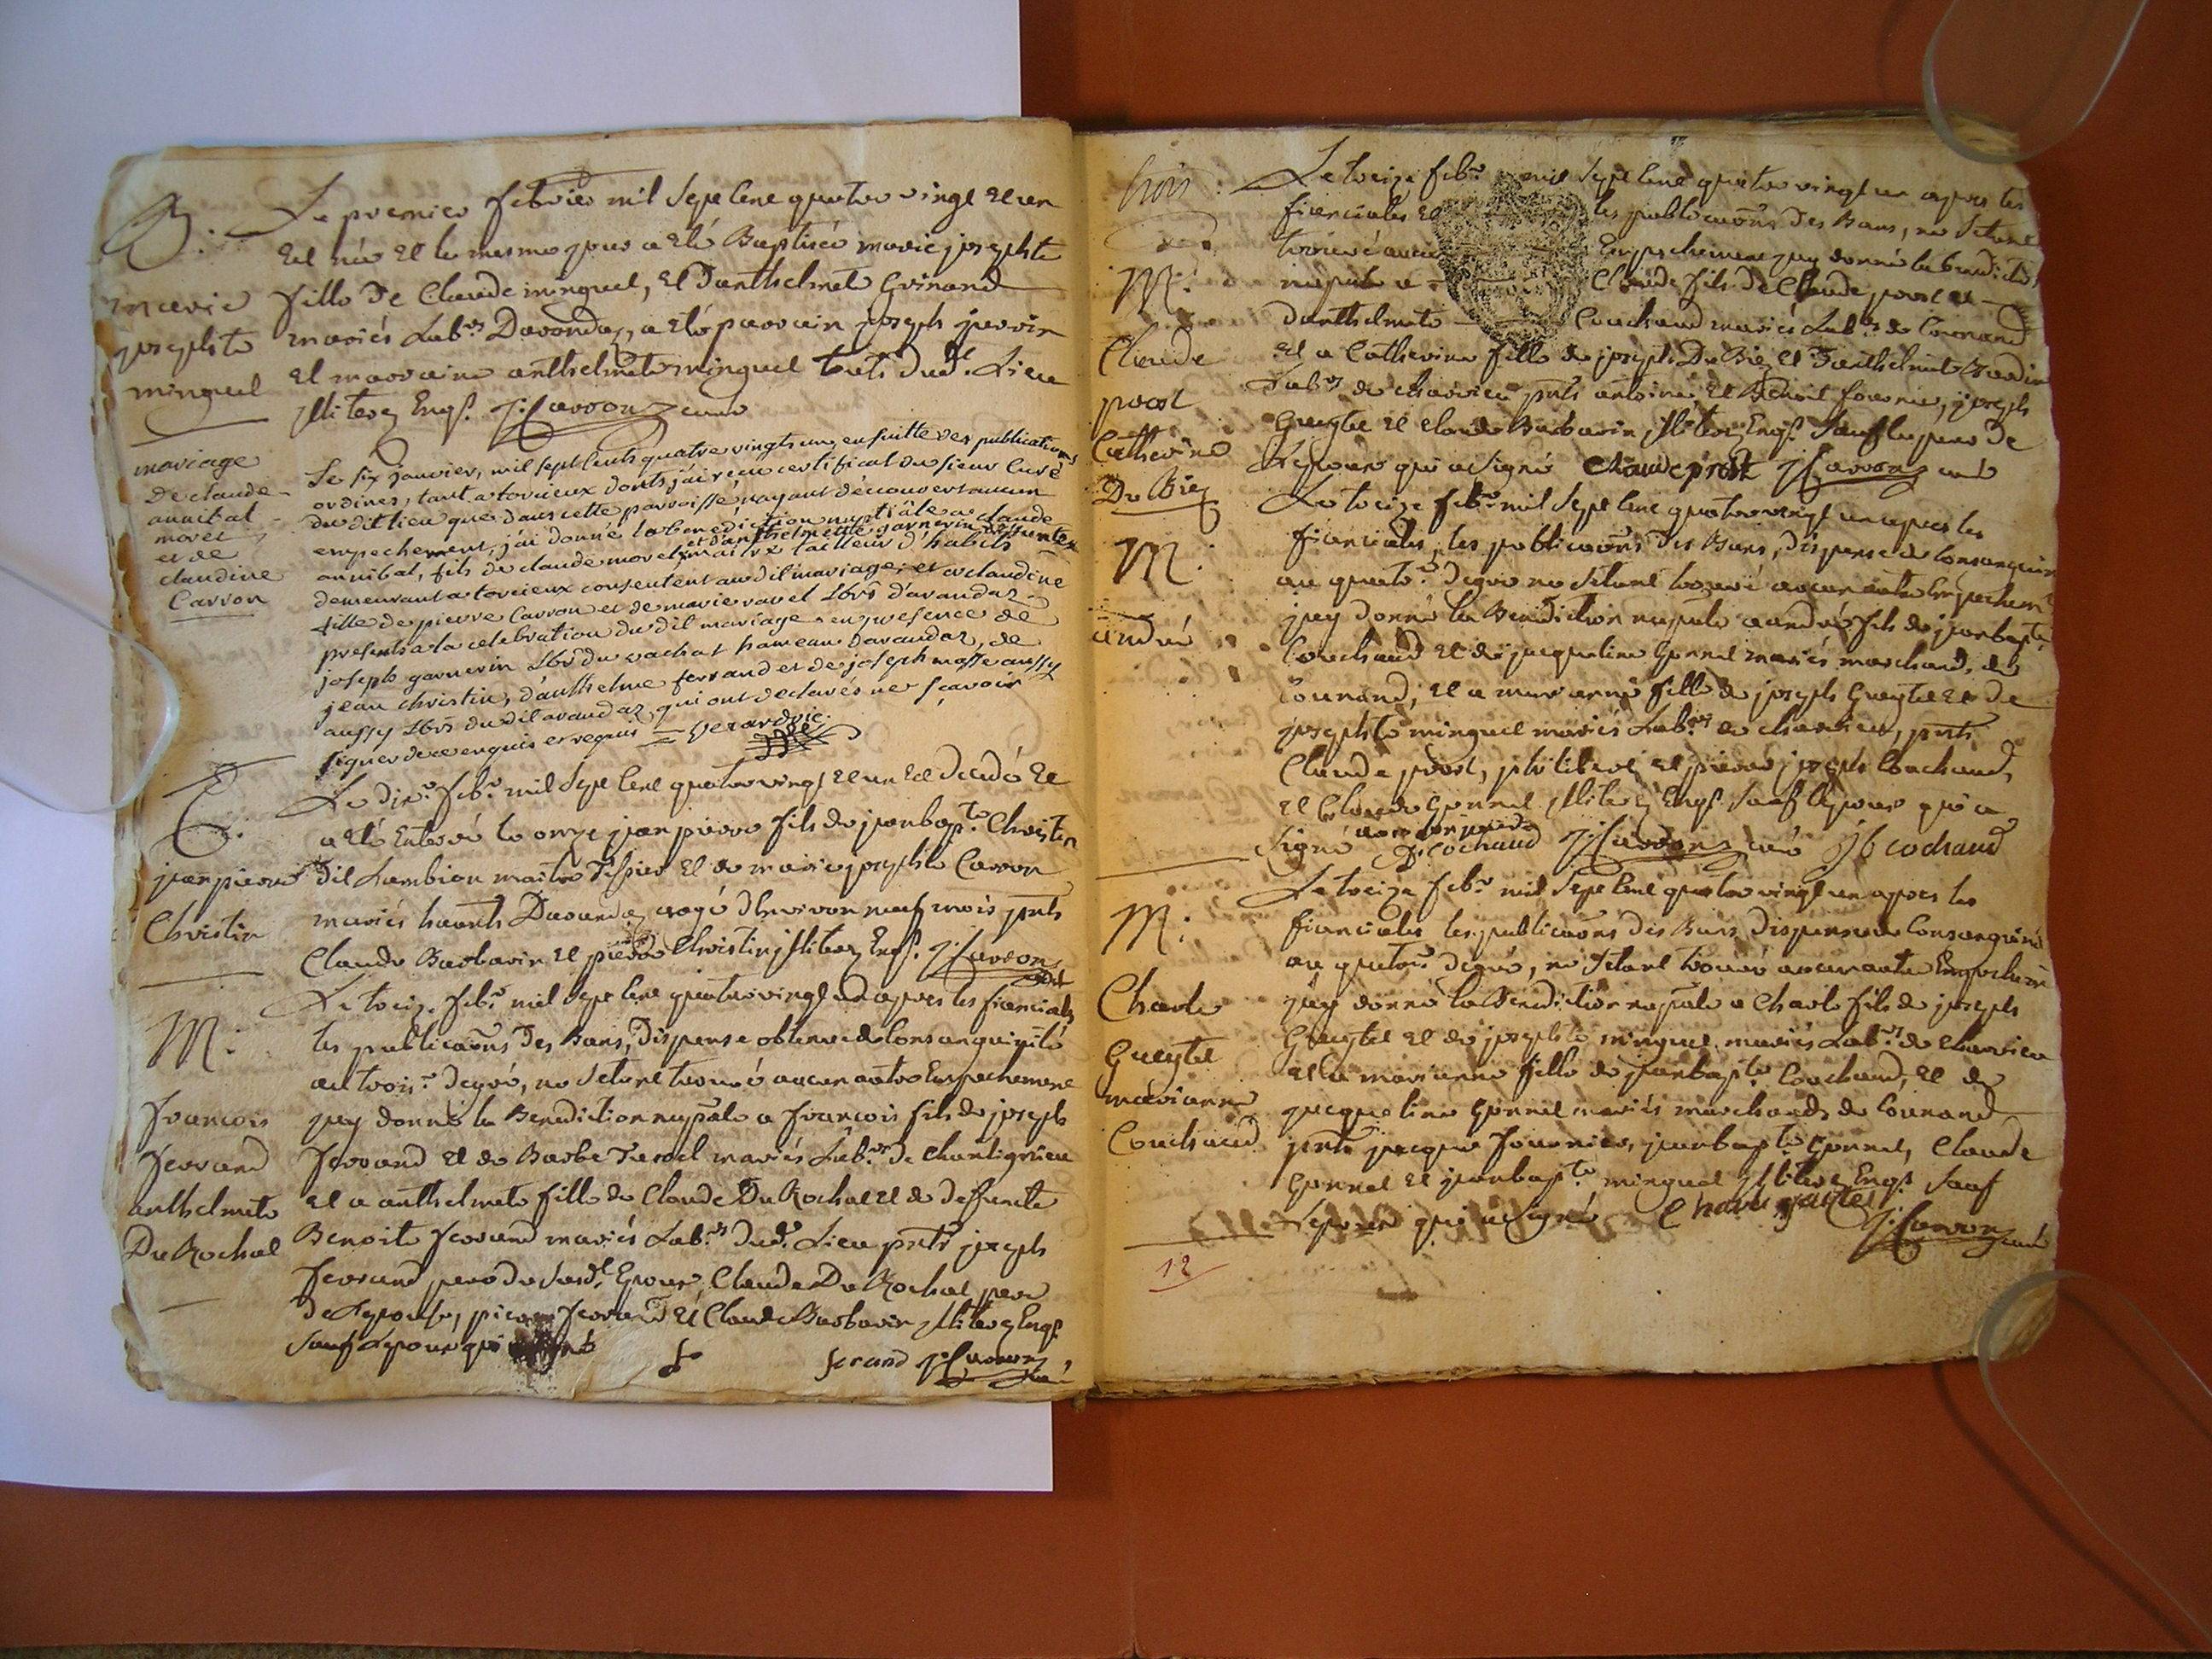 B:
marie
josephte
minguel
Le premier febvrier mil sept cent quatre vingt et un
est née et le mesme jour a eté Baptisée marie josephte
fille de Claude minguet, et danthelmete Guinand
mariés Lab.rs Davandaz, a eté parrain joseph
et marraine anthelmete minguet touts dud.t Lieu
illiterez Enq.s J: Carron curé
mariage
de claude
annibal
moret
et de
claudine
Carron
Le six janvier, mil sept cents quatre vingts un, ensuitte des publications
ordines, tant a torcieux donts j'ai recu certificat du sieur Curé
du dit lieu que dans cette parroisse, n'ayant découvert aucun
empechement, j'ai donné la benediction nuptiale a claude
annibal, fils de claude moret, et d'anthelmette garnerin maitre tailleur d'habits
demeurant a torcieux consentent au dit mariage, et a claudine
fille de pierre Carron et de marie ravet Lbrs d'avandaz
presents a la celebration du dit mariage en presence de
joseph garnerin Lbr du vachat hameau davandaz, de
jean christin, d'anthelme ferrand et de joseph masse aussy
aussy Lbrs du dit avandaz, qui ont declarés ne scavoir
signer de ce enquis et requis
E:
jean pierre
Christin
Le dix.e feb.r mil sept cent quatre vingt et un est decedé et
a eté Enterré le onze jean pierre fils de jean bap.te Christin
dit Lambion maitre Tissier et de marie josephte Carron
mariés habnts Davandaz agé denviron neuf mois pnts
Claude Barbarin et pierre Christin illiterez Enq.s J: Carron
M:
francois
ferrand
anthelmete
Du Rochat
Le treize feb.r mil sept cent quatre vingt un apres les fiancialles
les publicaons des Bans, Dispense obtenue de Consanguinité
au trois.e degré, ne setant trouvé aucun autre Empechement
jay donné la Benediction nuptale a francois fils de joseph
ferrand et de Barbe mariés Lab.rs de
et a anthelmete fille de Claude Du Rochat et de deffunte
Benoite ferrand mariés Lab.rs dud.t Lieu pnts joseph
ferrand pere du susd.t Epoux, Claude Du Rochat pere
de Lepouse, pierre ferrand et Claude Barbarin illiterez Enq.s
sauf Lepoux qui a signé
f ferand J: Carron curé
trois
M:
Claude
prost
Catherine
Du Biez
Le treize feb.r mil sept cent quatre vingt un apres les
fiancialles et les publicaons des Bans, ne setant
trouvé aucun Empechement jay donné la benediction
nuptale a Claude fils de Claude prost et
danthelmete Couchaud mariés Lab.rs de Conand
et a Catherine fille de joseph Du Biez et danthelmete Bardin
Lab.rs de charvieu pnts antoine et Benoit fournier, joseph
Gueytet et Claude Barbarin illiterez Enq.s sauf le pere de
Lepoux qui a signé Claude prost J: Carron curé
M:
andré
Le treize feb.r mil sept cent quatre vingt un apres les
fiancialles, les publicaons des Bans, dispense de Consanguin
au quatr.e degré ne setant trouvé aucun autre Empechem.t
jay donné la Benediction nuptale a andré fils de jean bapt.e
Couchaud et de jacqueline Gonnet mariés marchand, de
Counand, et a marianne fille de joseph Gueytet et de
josephte minguet mariés Lab.rs de charvieu, pnts
Claude prost, philibert et pierre joseph Couchaud,
et Claude Gonnet illiterez Enq.s sauf Lepoux qui a
signé Cochaud J: Carron curé J b cochaud
M:
Charle
Gueytet
marianne
Couchaud
Le treize feb.r mil sept cent quatre vingt un apres les
fiancialles les publicaons des Bans Dispense de Consanguinité
au quatr.e degré, ne setant trouvé aucun autre Empechem.t
jay donné la Benediction nuptale a Charle fils de joseph
Gueytet et de josephte minguet mariés Lab.rs de charvieu
et a marianne fille de jean bap.te Couchaud, et de
jacqueline Gonnet mariés marchands de Counand
pnts jacque fournier, jean bap.te Gonnet, Claude
Gonnet et jean bap.te minguet illiterez Enq.s sauf
Lepoux qui a signé Charle gueytet
J: Carron curé
12